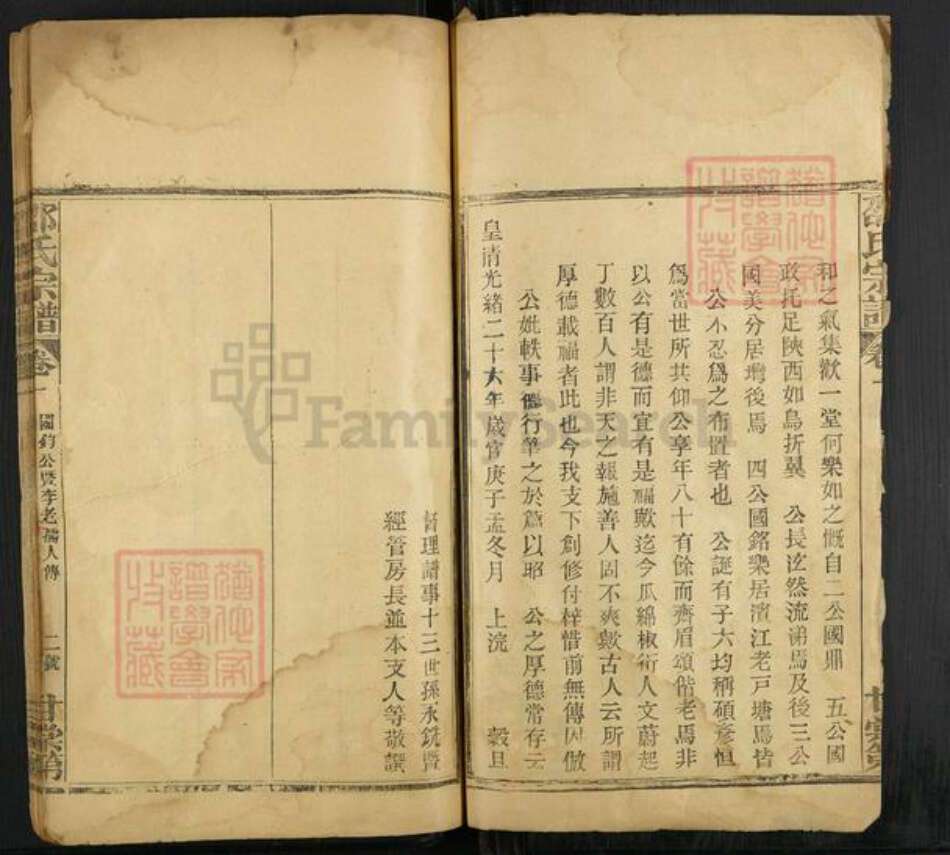 邵氏宗譜 卷一
和之氣集歡一堂何樂如之慨自二公國鼎 五公國
政托足陝西如鳥折翼 公長泣然流涕焉及後三公
國美分居壪後焉 四公國銘樂居濱江老戸塘焉皆
公不忍爲之布置者也 公誕有子六均稱碩彥恒
爲當世所共仰公享年八十有餘而齊眉頌偕老焉非
以公有是德而宜有是福歟迄今瓜綿椒衍人文蔚起
丁數百人謂非天之報施善人固不爽歟古人云所謂
厚德載福者此也今我支下創修付梓惜前無傳因倣
公妣軼事德行筆之於篇以昭 公之厚德常存云
皇清光緒二十六年歲官庚子孟冬月 上浣 穀旦
督理譜事十三世孫永銑暨
經管房長並本支人等敬譔
邵氏宗譜 卷一 國鈞公暨李老孺人傳 二號 甘棠第
甘棠第
猶他家譜學會收藏
猶他家譜學會收藏
FamilySearch